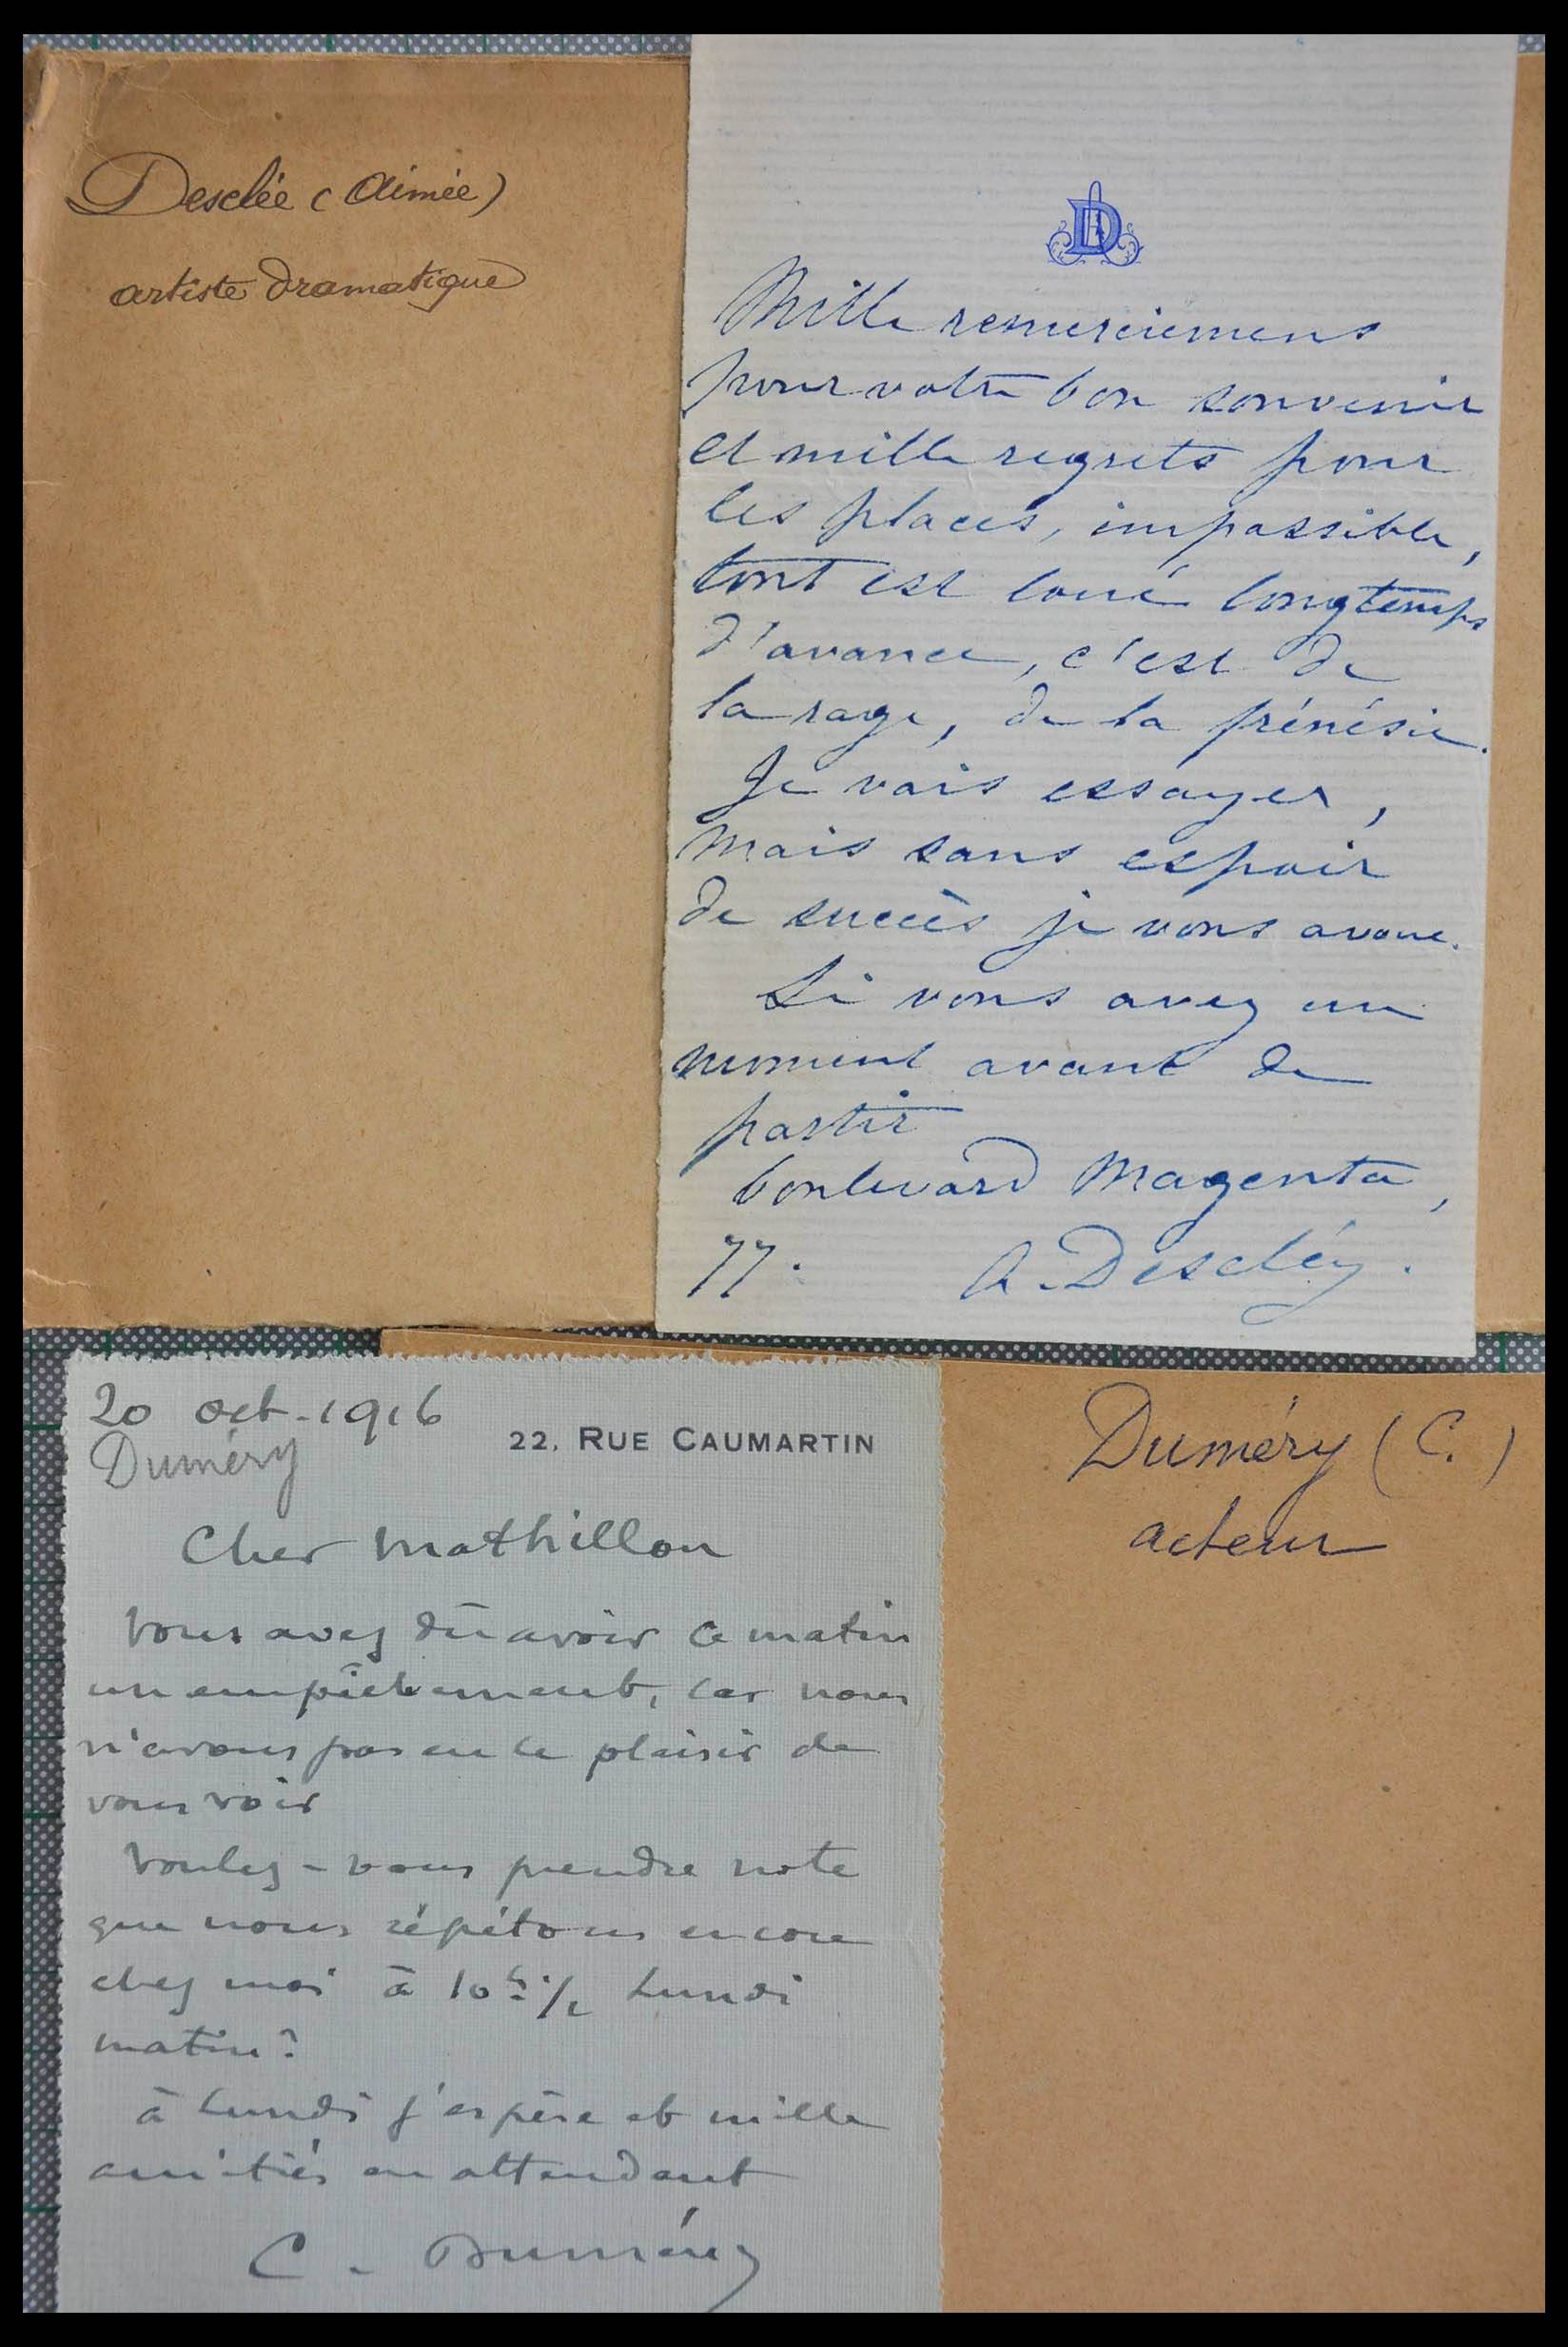 Desclée (Aimée)
artiste dramatique
AD
Mille remerciemens
pour votre bon souvenir
et mille regrets pour
les places, impossible,
tout est loué longtemps
d'avance, c'est de
la rage, de la frénésie.
Je vais essayer,
mais sans espoir
de succès je vous avoue.
Si vous avez un
moment avant de
partir
boulevard Magenta,
77. A. Desclée.
20 oct. 1916
Duméry
22, RUE CAUMARTIN
Cher Mathillon
Vous avez dû avoir ce matin
un empêchement, car nous
n'avons pas eu le plaisir de
vous voir
Voulez-vous prendre note
que nous répétons encore
chez moi à 10h 1/2 Lundi
matin?
à Lundi j'espère et mille
amitiés en attendant
C. Duméry
Duméry (C.)
acteur